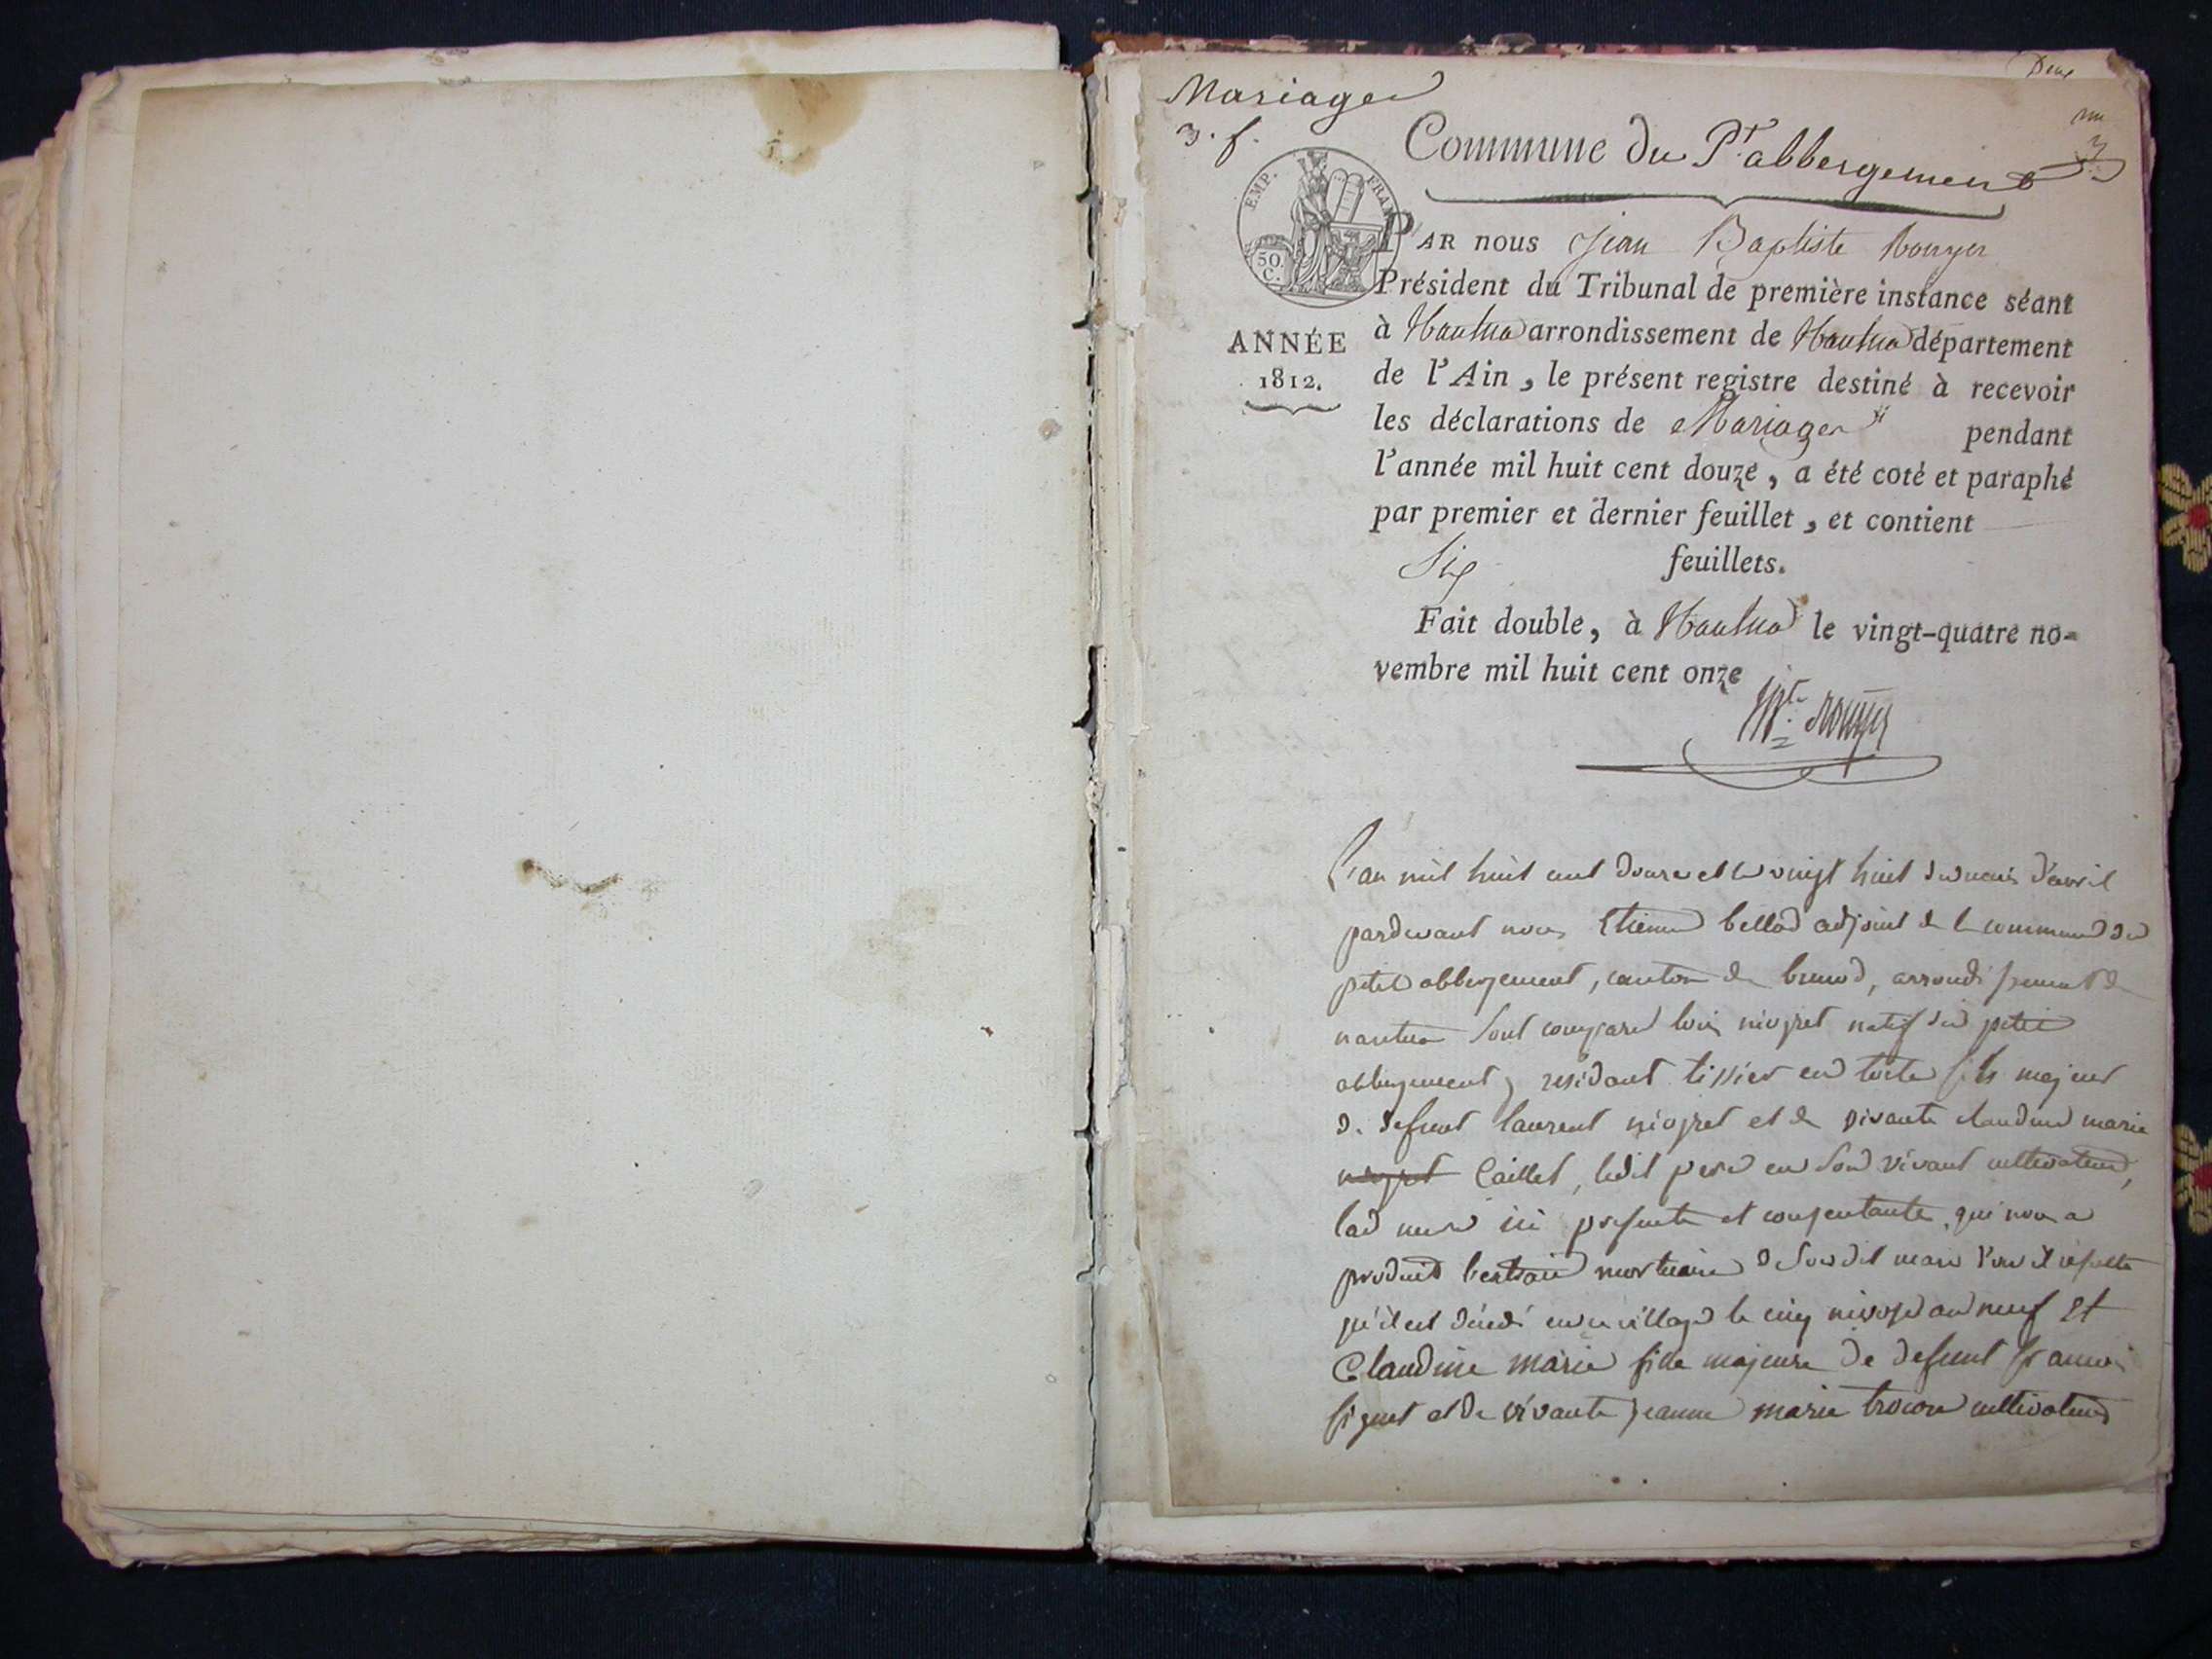 Deux
Mariages
3. f.
Commune du Pt. abbergement
EMP. FRAN
50. C.
PAR nous Jean Baptiste Rouyer
Président du Tribunal de première instance séant
à Nantua arrondissement de Nantua département
ANNÉE
1812.
de l'Ain, le présent registre destiné à recevoir
les déclarations de Mariages pendant
l'année mil huit cent douze, a été coté et paraphé
par premier et dernier feuillet, et contient
Six feuillets.
Fait double, à Nantua le vingt-quatre no-
vembre mil huit cent onze
L'an mil huit cent douze et le vingt huit du mois d'avril
pardevant nous Etienne bellod adjoint de la commune du
petit abbergement, canton de brenod, arrondissement de
nantua sont comparu loui niogret natif du petit
abbergement, residant tissier en toile fils majeur
de defunt laurent niogret et de vivante claudine marie
niogret Caillet, ledit pere en son vivant cultivateur,
lad mere ici presente et consentante, qui nous a
produit l'extrait mortuaire de sondit mari d'ou il resulte
qu'il est décédé en ce village le cinq nivose an neuf Et
Claudine marie fille majeure de defunt francois
figuet et de vivante jeanne marie trocon cultivateurs